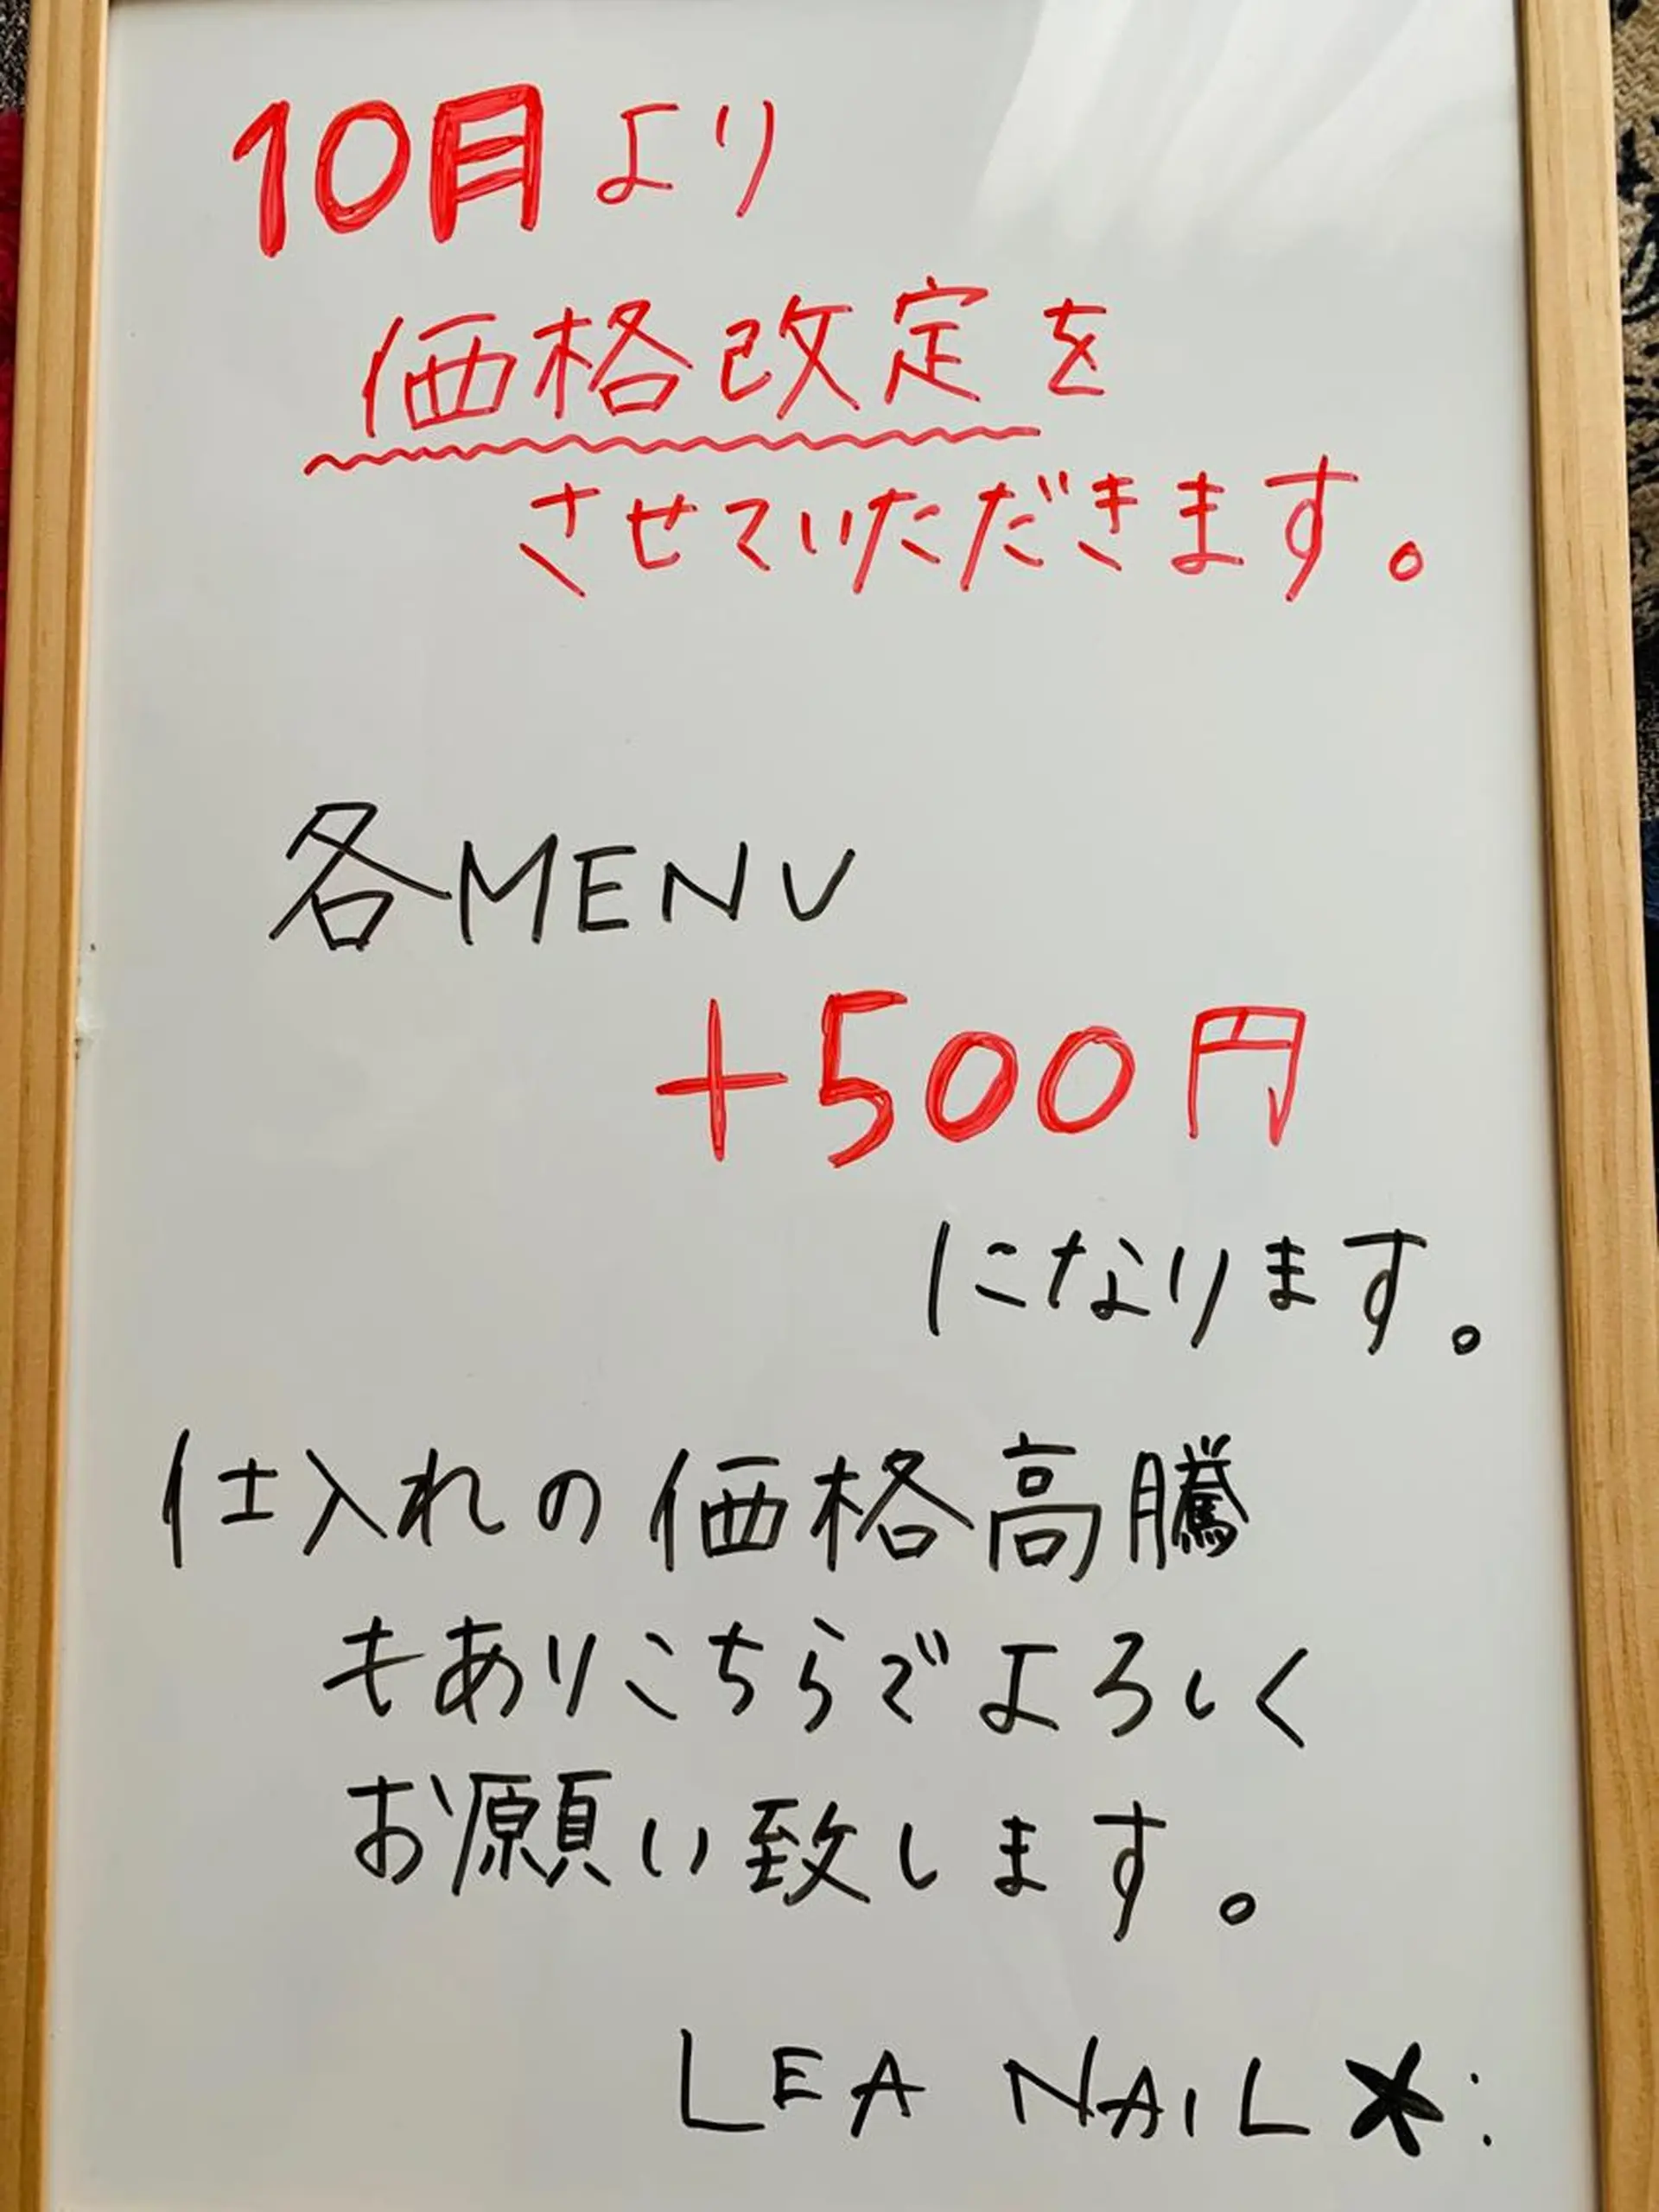 10月より
価格改定を
させていただきます。
各MENU
+500円
になります。
仕入れの価格高騰
もありこちらでよろしく
お願い致します。
LEA NAIL*: